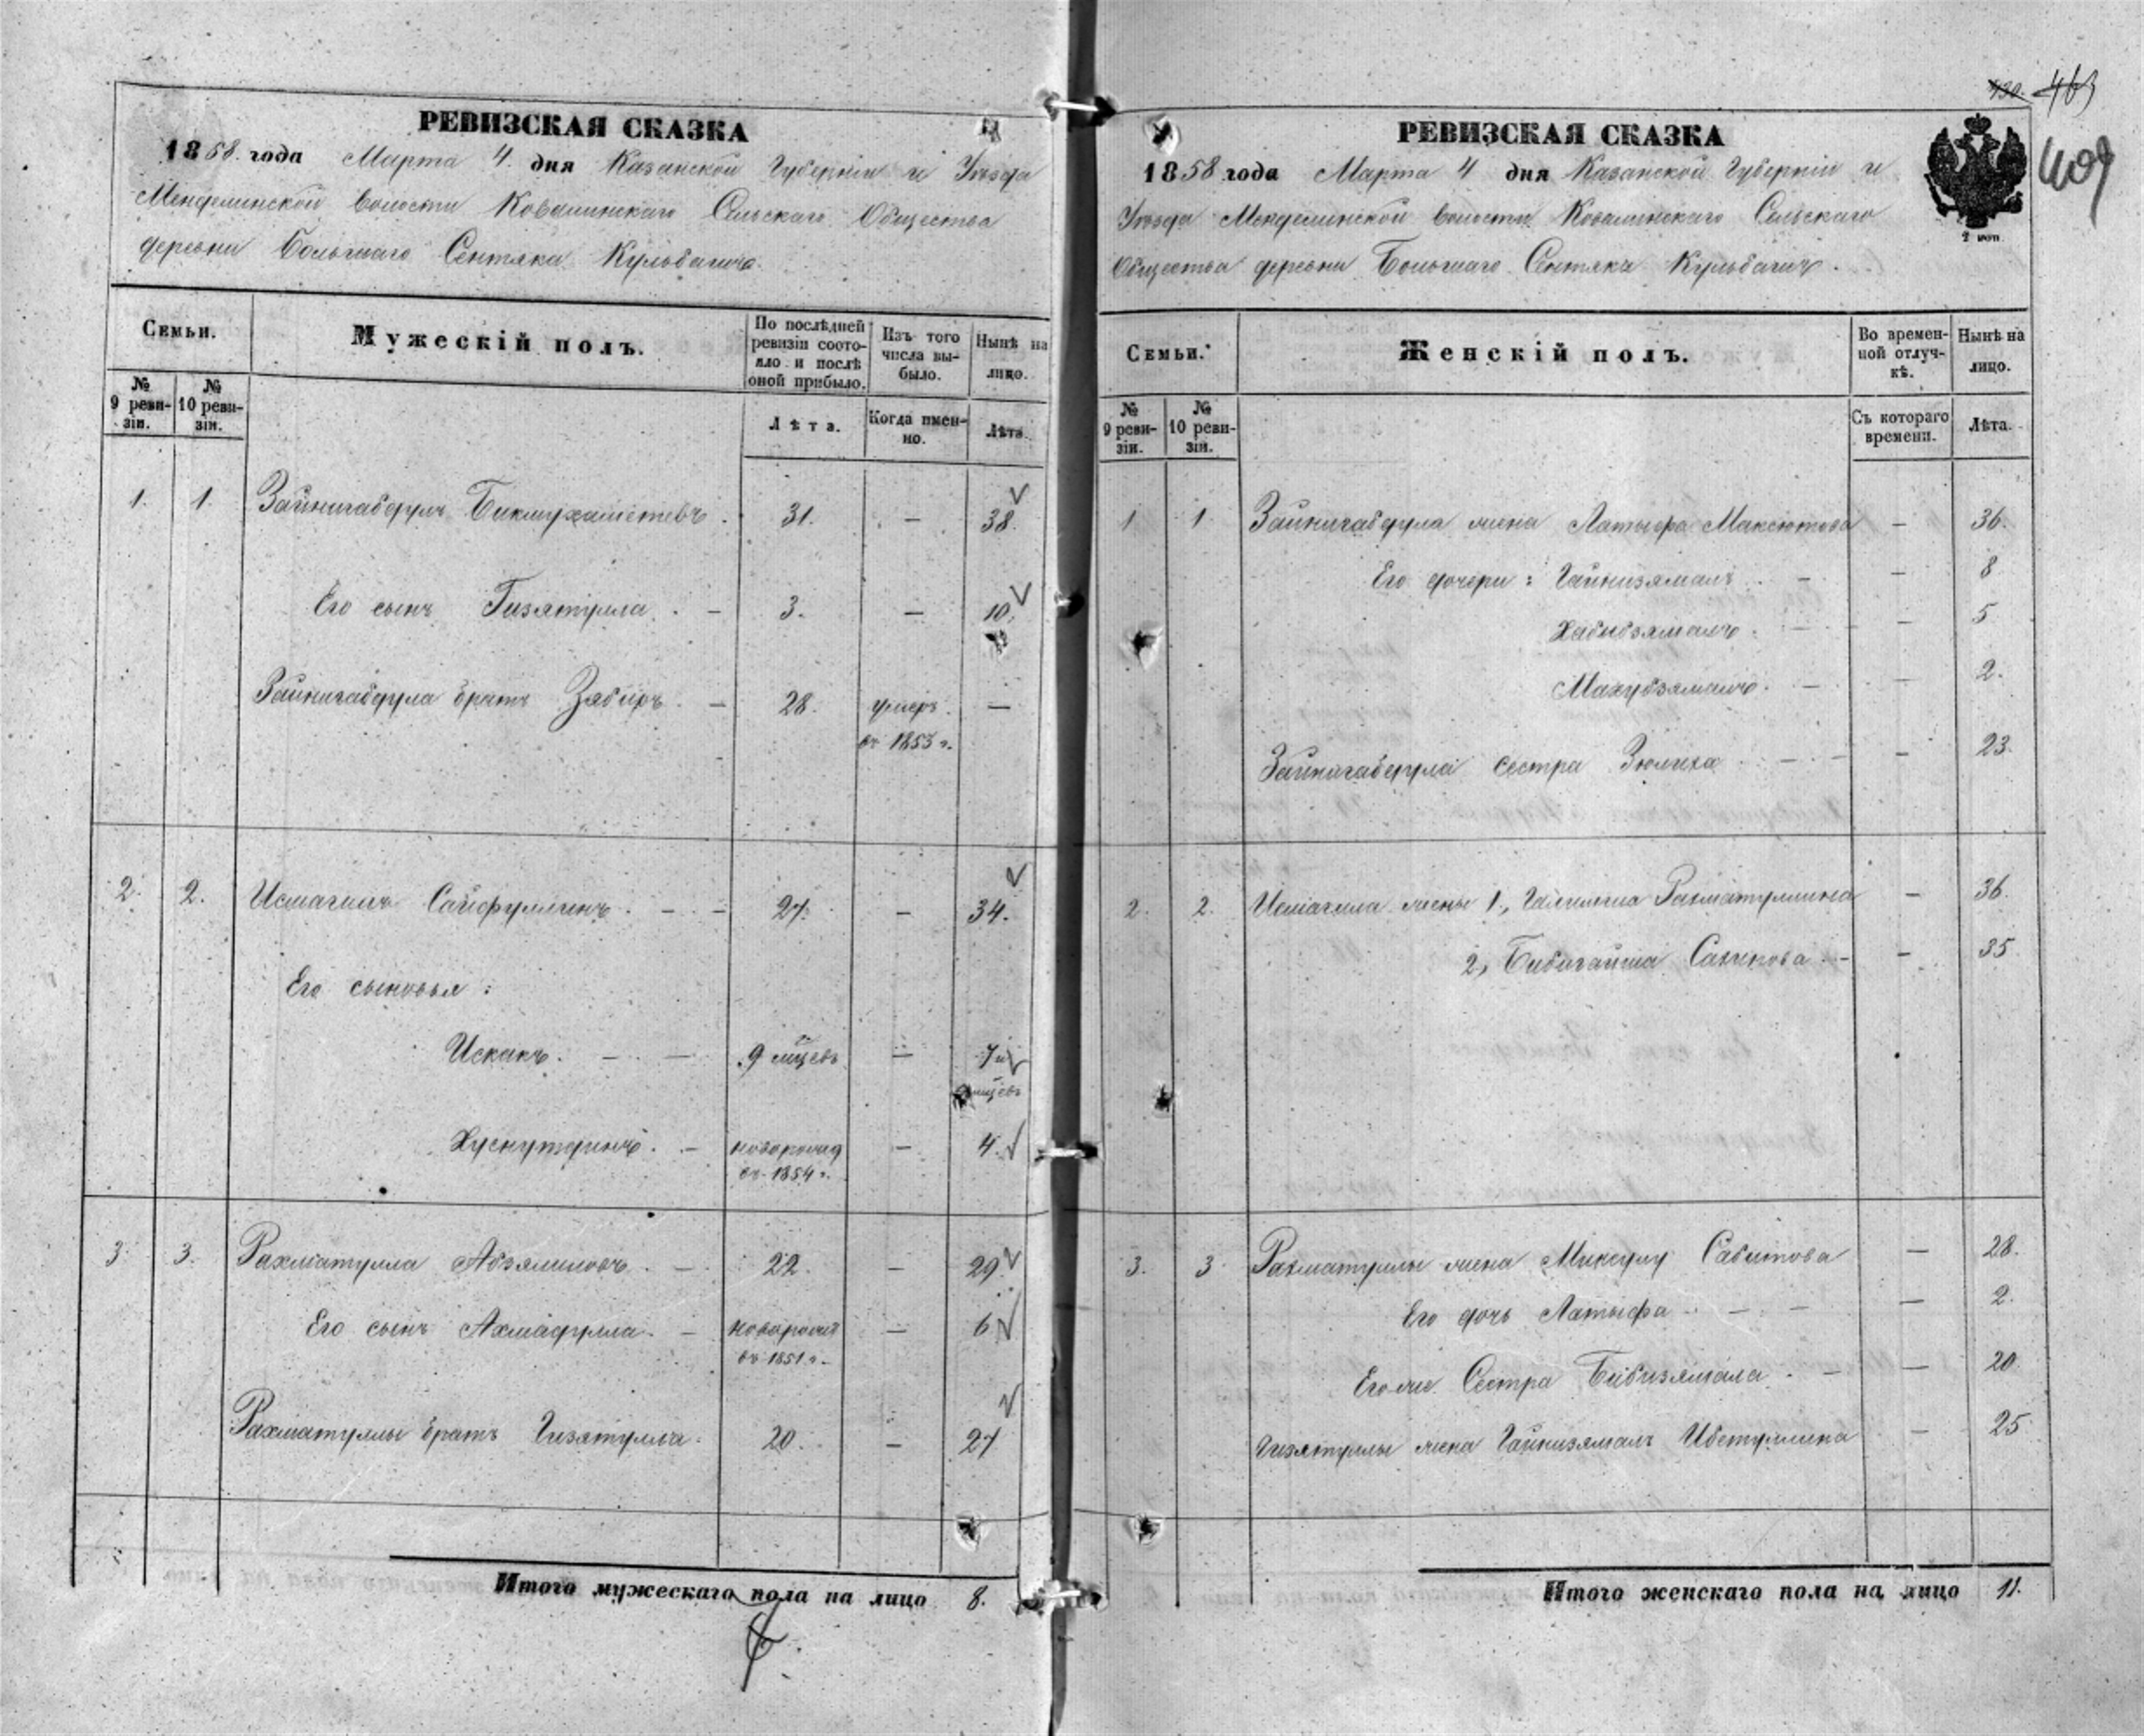 430. 463
409
РЕВИЗСКАЯ СКАЗКА
1858 года Марта 4 дня Казанской Губерніи и Уѣзда
Менделинской волости Ковалинскаго Сельскаго Общества
деревни Большаго Сентяка Кульбашъ.
Семьи.
Мужескій полъ.
По послѣдней ревизіи состояло и послѣ оной прибыло.
Изъ того числа выбыло.
Нынѣ на лицо.
№ 9 ревизіи.
№ 10 ревизіи.
Лѣта.
Когда именно.
Лѣта.
1. 1. Зайнигабдулъ Бикмухаметевъ. 31. — 38.
Его сынъ Гизятулла. — 3. — 10.
Зайнигабдула братъ Зябиръ. — 28. умеръ въ 1853 г. —
2. 2. Исмагилъ Сайфуллинъ. — — 27. — 34.
Его сыновья:
Искакъ. — — 9 мцевъ — 7 и мцевъ
Хуснутдинъ. — новорожд въ 1854 г. — 4.
3. 3. Рахматулла Абзялиловъ. — 22. — 29.
Его сынъ Ахмадулла. — новорожд въ 1851 г. — 6
Рахматуллы братъ Гизятулла. 20. — 27
Итого мужескаго пола на лицо 8.
РЕВИЗСКАЯ СКАЗКА
1858 года Марта 4 дня Казанской Губерніи и
Уѣзда Менделинской волости Ковалинскаго Сельскаго
Общества деревни Большаго Сентяка Кульбашъ.
Семьи.
Женскій полъ.
Во временной отлучкѣ.
Нынѣ на лицо.
№ 9 ревизіи.
№ 10 ревизіи.
Съ котораго времени.
Лѣта.
1 1 Зайнигабдула жена Латыфа Максютова — 36.
Его дочери: Гайнизямалъ — — 8
Хабибзямалъ. — — 5
Махубзямалъ. — — 2.
Зайнигабдула сестра Зюлиха — — 23.
2. 2. Исмагила жены 1, Рахматуллина — 36.
2, Бибигайша — — 35
3. 3 Рахматуллы жена Сабитова — 28.
Его дочь Латыфа — — — 2.
Его же Сестра Бибизямала. — — 20.
Гизятуллы жена Гайнизямалъ Ибетуллина — 25
Итого женскаго пола на лицо 11.